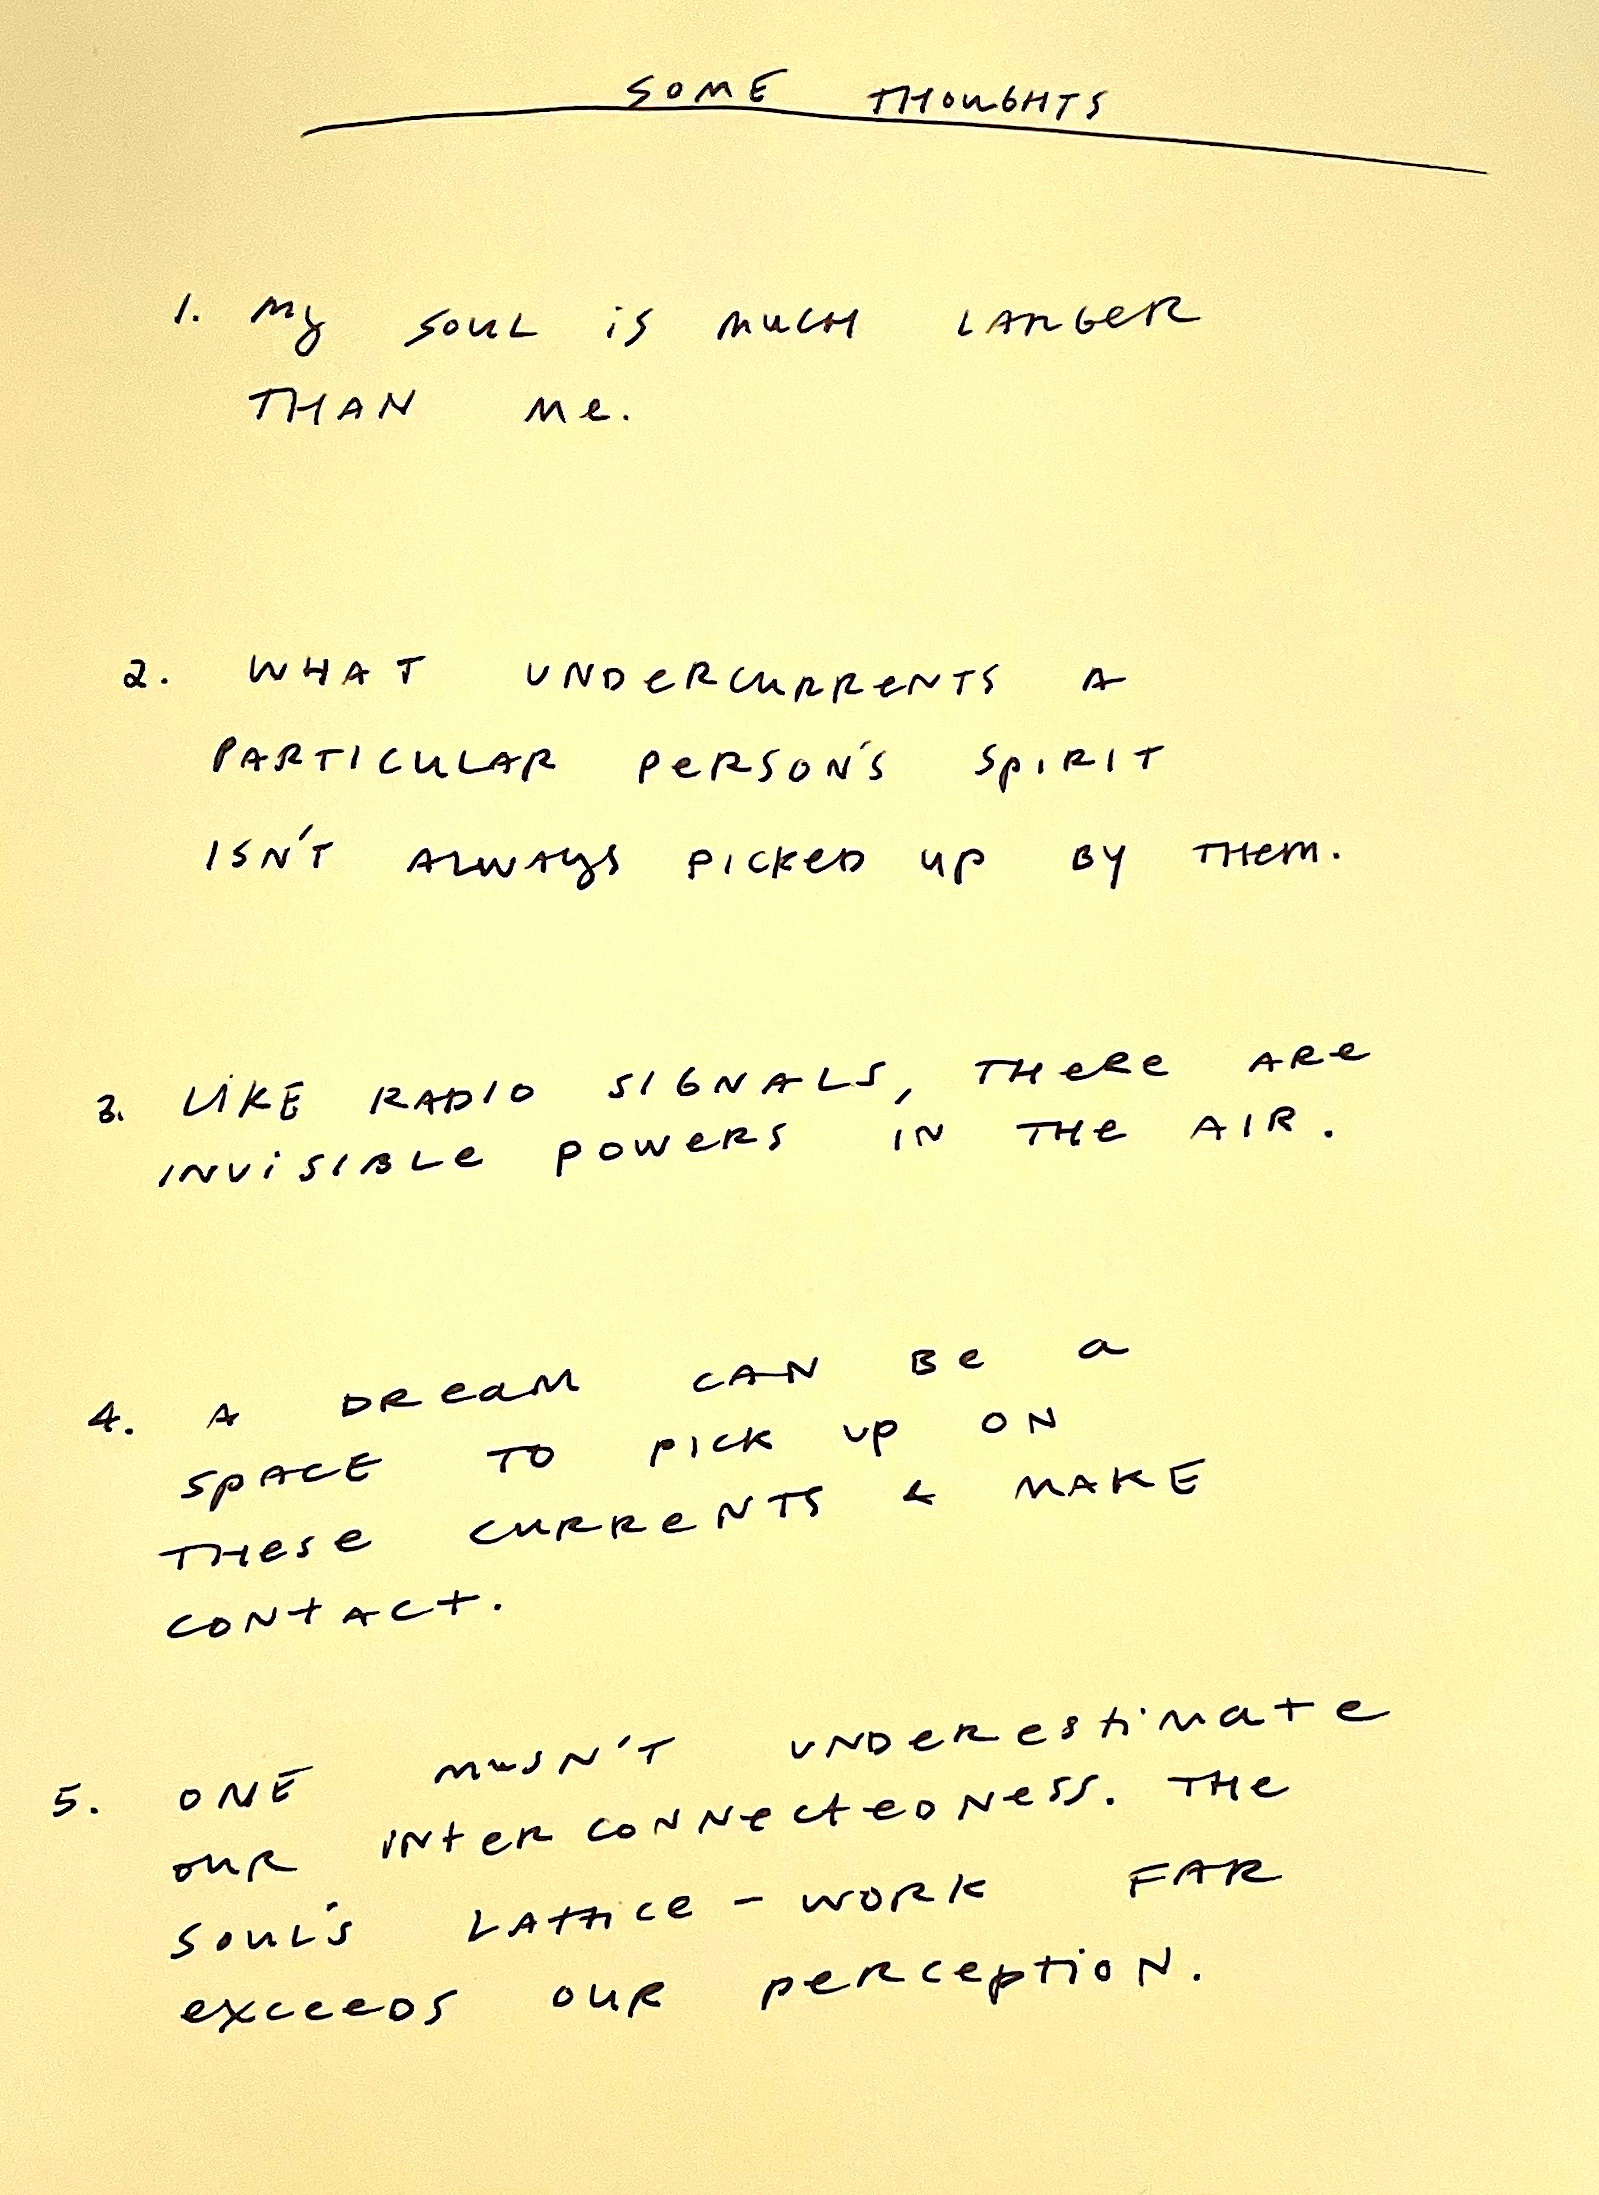 SOME THOUGHTS
1. My SOUL iS MUCH LARGER
THAN Me.
2. WHAT UNDeRCURReNTS A
PARTICULAR PeRSON'S SpIRIT
ISN'T ALWAyS PICKeD up BY THem.
3. LiKE RADIO SIGNALS, THeRe ARe
INViSIBLe POWeRS IN THe AIR.
4. A DReaM CAN Be a
SpACE TO PICK Up ON
THese CURReNTS & MAKE
CONtACt.
5. ONE MusN'T UNDeRestimate
OUR INteRCONNecteDNess. THe
SOUL'S LAttice-WORK FAR
exceeDS OUR peRceptioN.